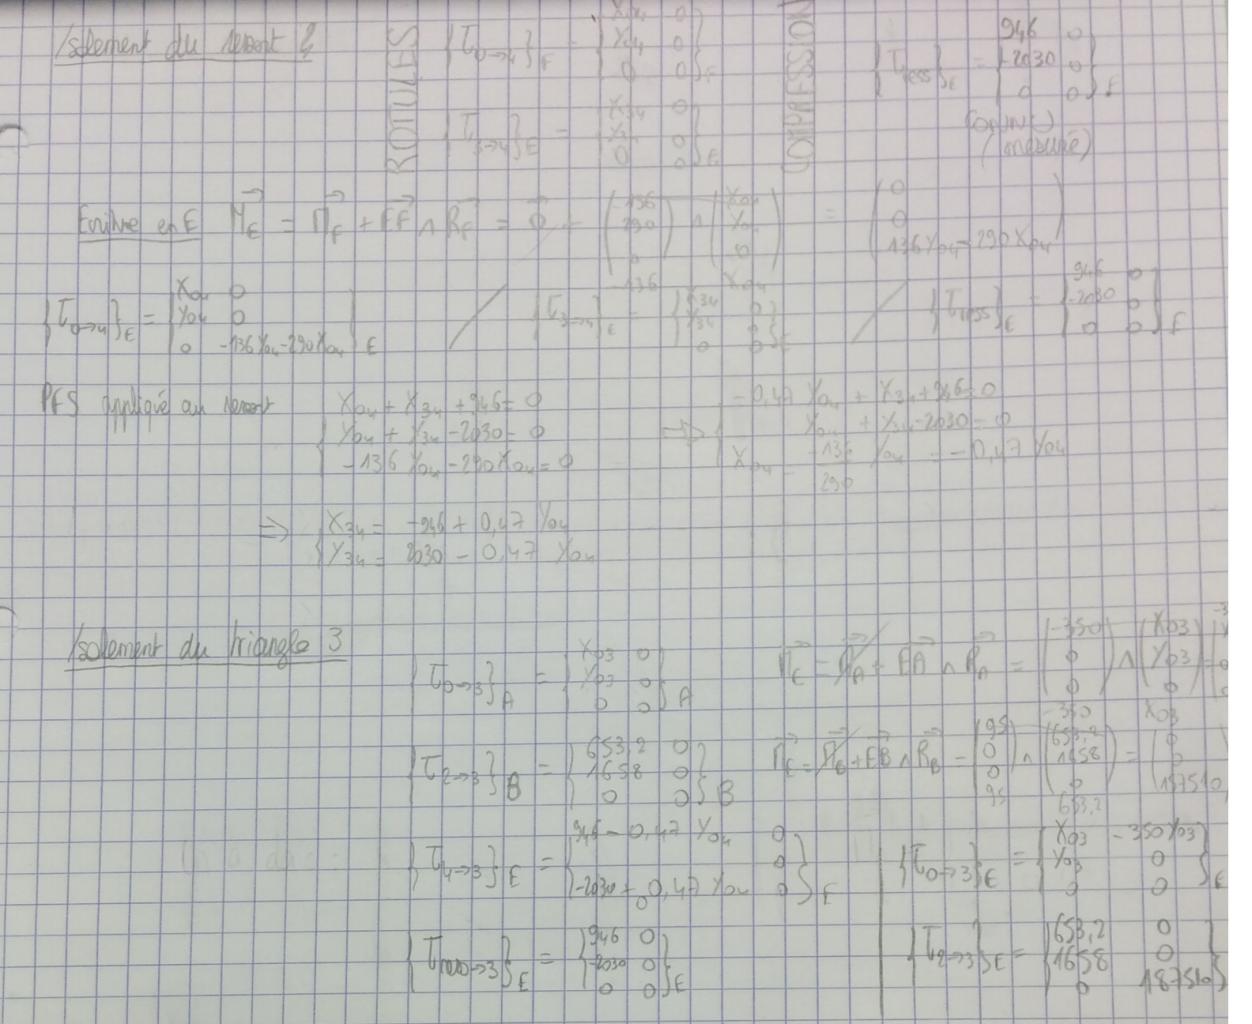 Isolement du ressort 4
ROTULES
{T0→4}F = {X04 0
Y04 0
0 0}F
{T3→4}E = {X34 0
Y34 0
0 0}E
COMPRESSION
{Tress}E = {946 0
-2030 0
0 0}E
(mesuré)
Ecriture en E ME = MF + EF ∧ RF = 0 + (-136
290
0) ∧ (X04
Y04
0) = (0
0
136Y04-290X04)
-136 X04
{T0→4}E = {X04 0
Y04 0
0 -136Y04-290X04}E
{T3→4}E = {X34 0
Y34 0
0 0}E
{Tress}E = {946 0
-2030 0
0 0}E
PFS appliqué au ressort
{X04 + X34 + 946 = 0
Y04 + Y34 - 2030 = 0
-136 Y04 - 290 X04 = 0
=> {-0,47 Y04 + X34 + 946 = 0
Y04 + Y34 - 2030 = 0
X04 = -136/290 Y04 = -0,47 Y04
=> {X34 = -946 + 0,47 Y04
Y34 = 2030 - 0,47 Y04
Isolement du triangle 3
{T0→3}A = {X03 0
Y03 0
0 0}A
ME = MA + EA ∧ RA = (-350
0
0) ∧ (X03
Y03
0) =
-350 X03
{T2→3}B = {653,2 0
1658 0
0 0}B
ME = MB + EB ∧ RB = (95
0
0) ∧ (653,2
1658
0) = (0
0
157510
95 653,2
{T4→3}E = {946 - 0,47 Y04 0
-2030 + 0,47 Y04 0
0 0}E
{T0→3}E = {X03 -350Y03
Y03 0
0 0}E
{Tress→3}E = {946 0
-2030 0
0 0}E
{T2→3}E = {653,2 0
1658 0
0 187510}